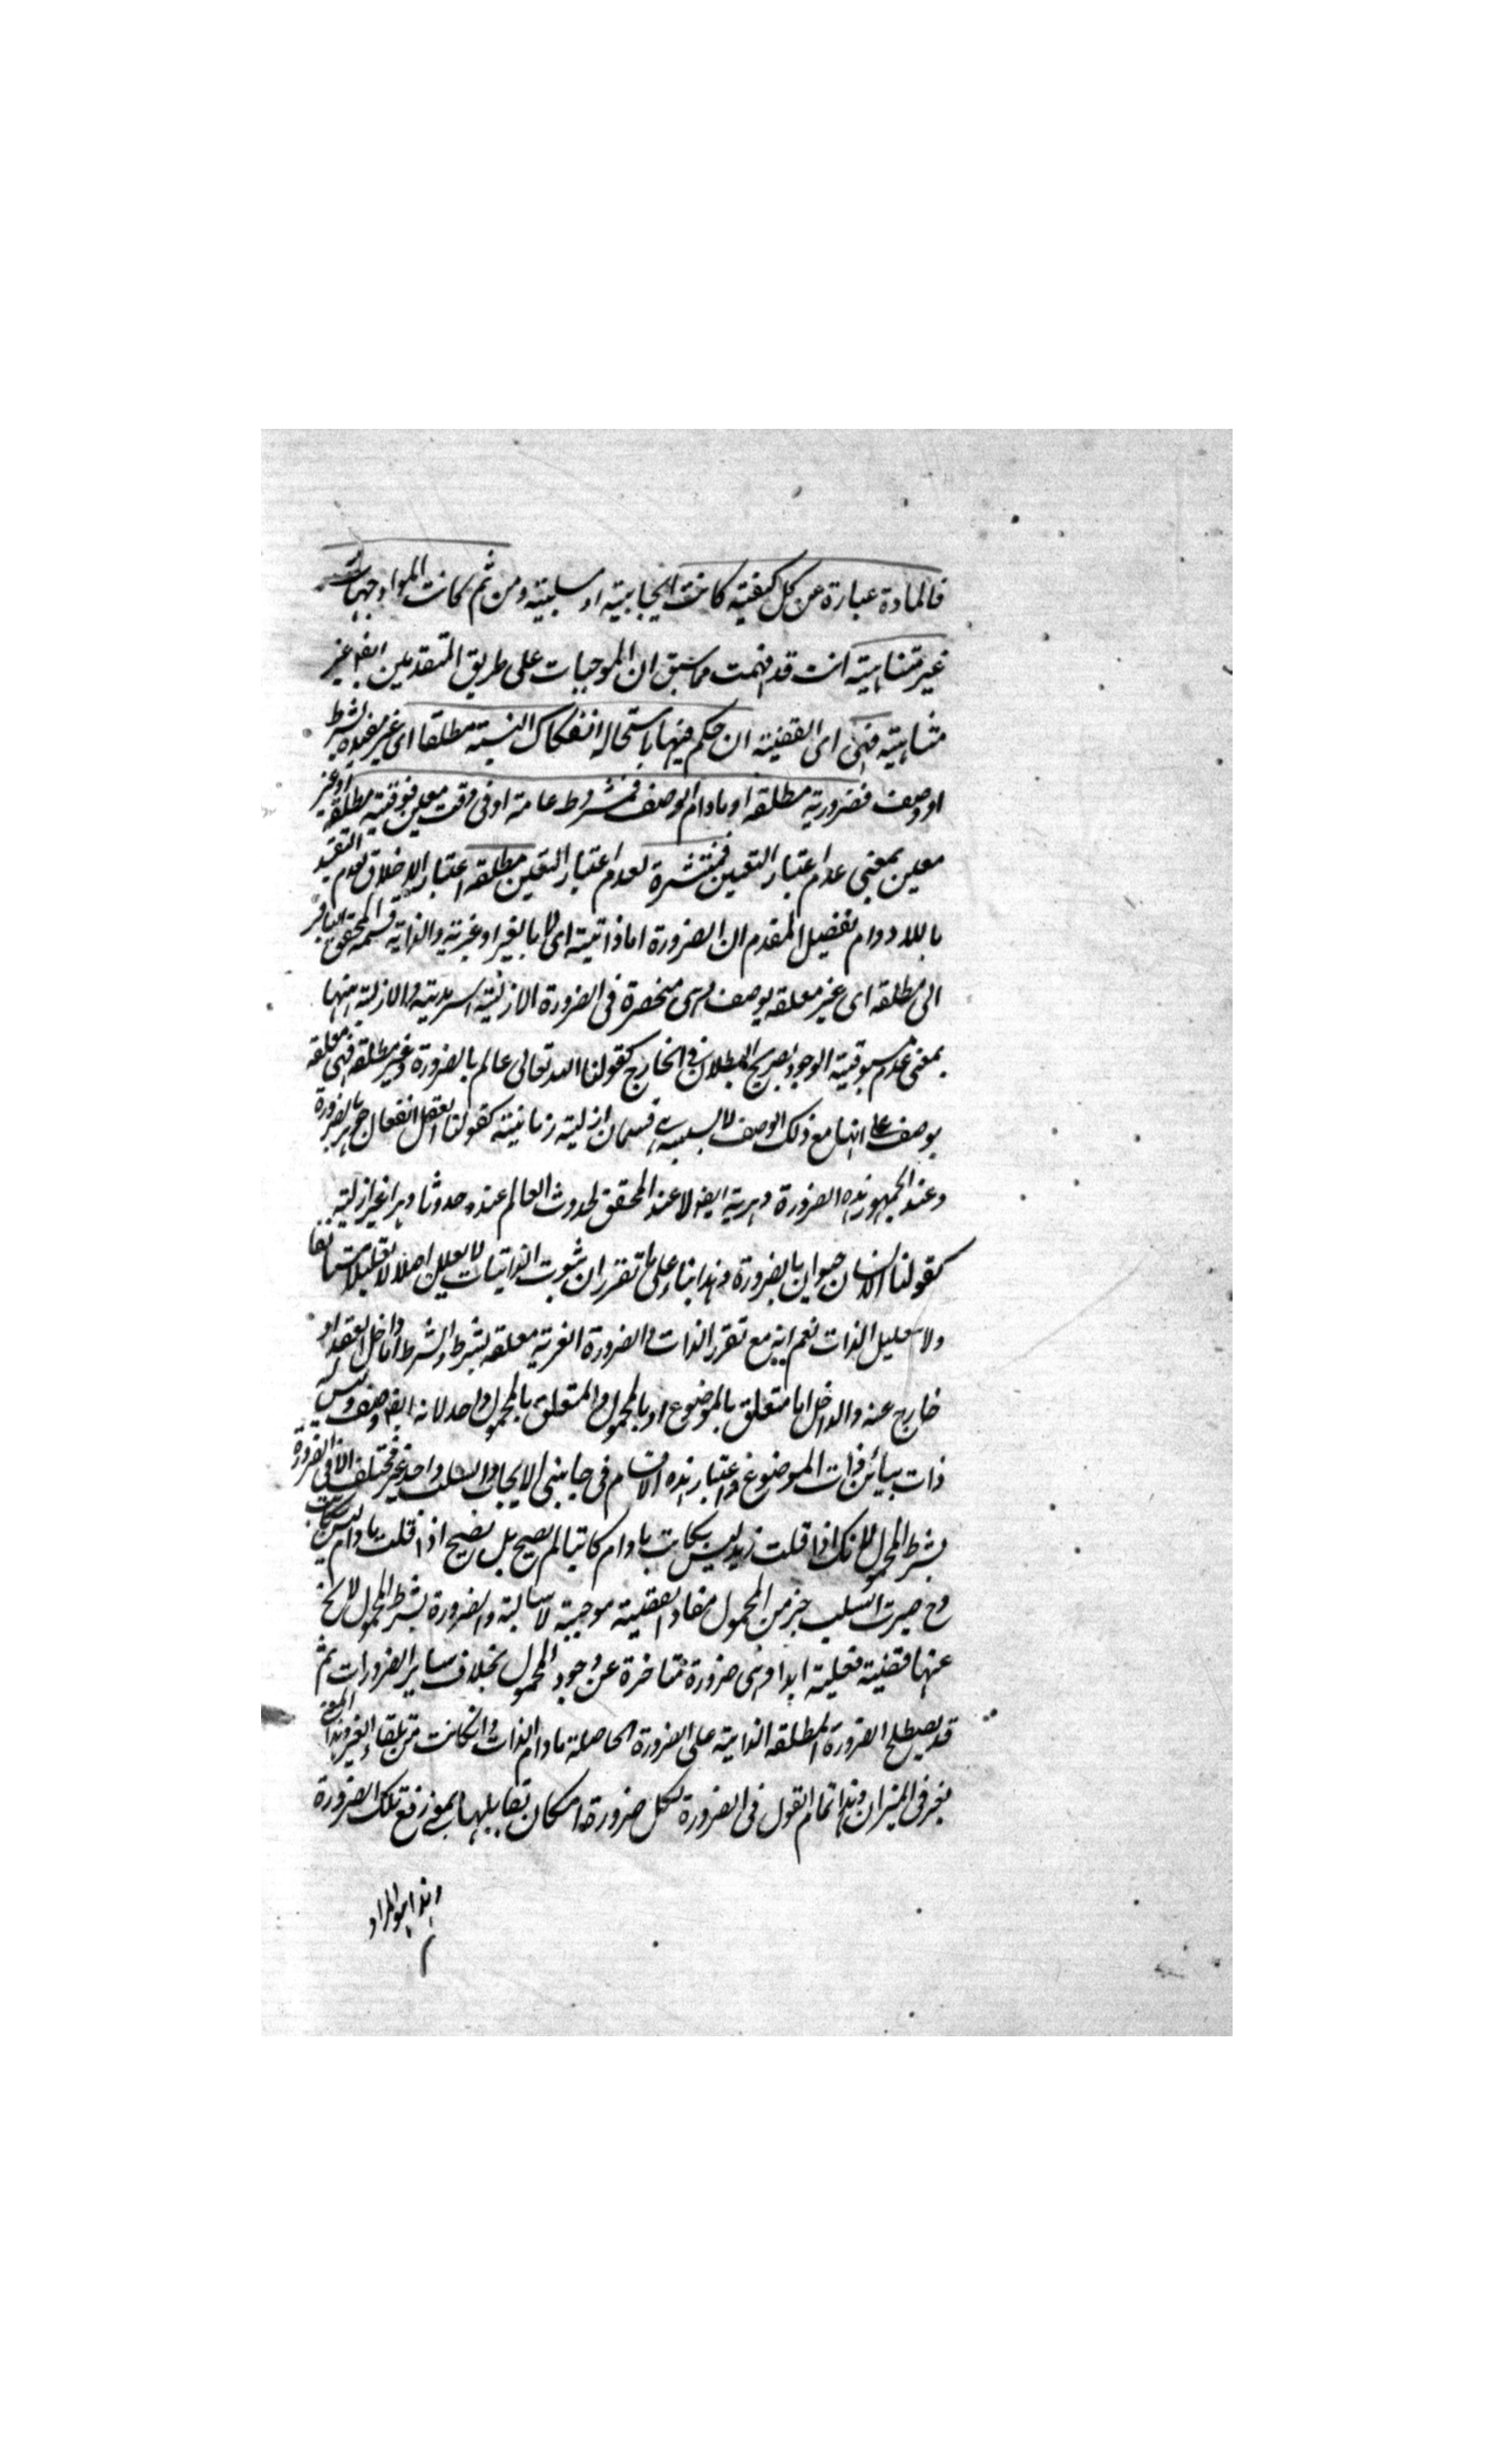 فالمادة عبارة عن كل كيفية كانت ايجابية او سلبية ومن ثم كانت المواد وجهات
غير متناهية انت قد فهمت مما سبق ان الموجهات على طريق المتقدمين ايضا غير
متناهية فهى اى القضية ان حكم فيها باستحالة انفكاك النسبة مطلقا اى غير مقيدة بشرط
او وصف فضرورية مطلقة او مادام الوصف فمشروطة عامة او فى وقت معين فوقتية مطلقة او غير
معين بمعنى عدم اعتبار التعين فمنتشرة لعدم اعتبار التعين مطلقة اعتبار الاطلاق لعدم التقييد
باللادوام تفصيل المقدم ان الضرورة اما ذاتية اى لا بالغير او غيرية والذاتية قسمه المحقق الباقر
الى مطلقة اى غير معلقة بوصف وهى منحصرة فى الضرورة الازلية السرمدية والازلية
بمعنى عدم مسبوقية الوجود بصريح البطلان فى الخارج كقولنا الله تعالى عالم بالضرورة وغير مطلقة فهى معلقة
بوصف ما انها مع ذلك الوصف لا بسببه قسمان ازلية زمانية كقولنا العقل الفعال جوهر بالضرورة
وعند الجمهور هذه الضرورة دهرية ايضا لا عند المحقق لحدوث العالم عنده حدوثا دهريا غير ازلية
كقولنا الانسان حيوان بالضرورة وهذا بناء على ما تقرر ان ثبوت الذاتيات لا يعلل اصلا لا تعليلا مستانفا
ولا بتعليل الذات نعم انه مع تقرر الذات والضرورة الغيرية معلقة بشرط والشرط اما داخل العقد او
خارج عنه والداخل اما متعلق بالموضوع او بالمحمول والمتعلق بالمحمول واحد لانه ايضا وصف وليس له
ذات يباين ذات الموضوع واعتبار هذه الاقسام فى جانبى الايجاب والسلب واحد غير مختلف الا فى الضرورة
بشرط المحمول لانك اذا قلت زيد ليس بكاتب مادام كاتبا لم يصح بل يصح اذا قلت مادام ليس بكاتب
وح صيرت السلب جزء من المحمول مفاد القضية موجبة لا سالبة والضرورة بشرط المحمول لا يخ
عنها قضية فعلية ابدا وهى ضرورة متاخرة عن وجود المحمول بخلاف ساير الضرورات ثم
قد يصطلح الضرورة المطلقة الذاتية على الضرورة الحاصلة مادام الذات وان كانت من تلقاء الغير وهذا المعنى
فى الميزان وهذا تمام القول فى الضرورة لكل ضرورة امكان تقابلها بمعنى رفع تلك الضرورة
وهذا هو المراد